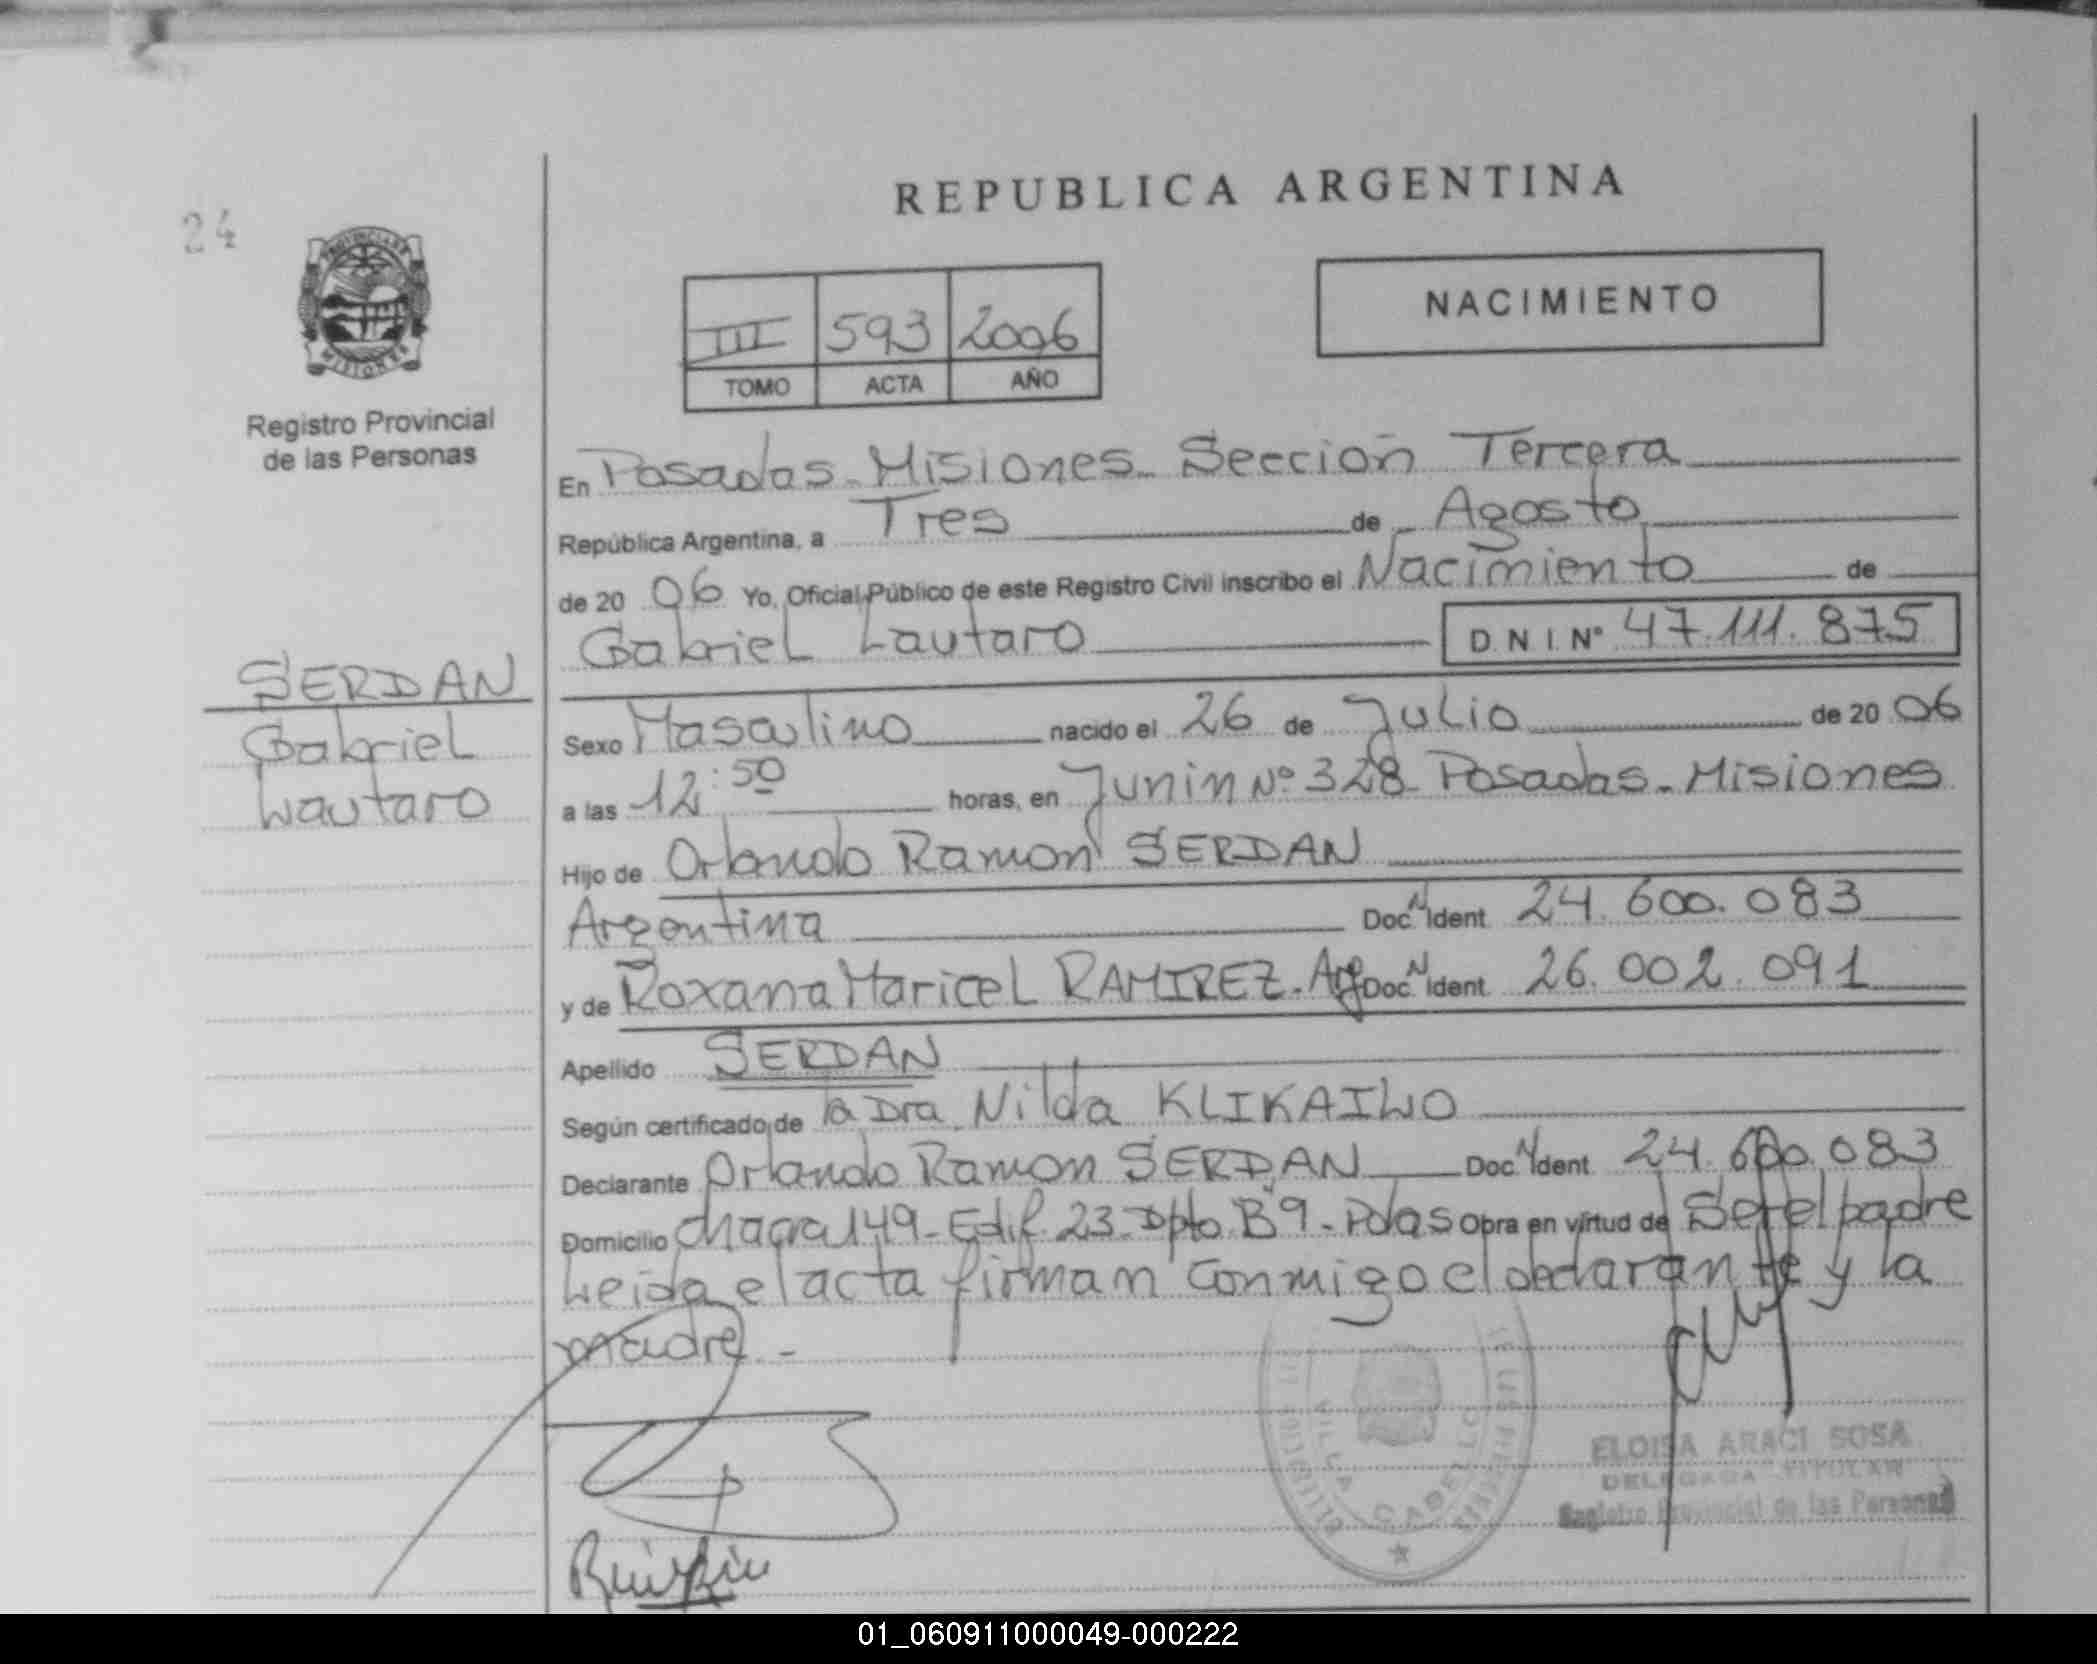 REPUBLICA ARGENTINA
24
PROVINCIA DE
MISIONES
Registro Provincial
de las Personas
III 593 2006
TOMO ACTA AÑO
NACIMIENTO
En Posadas-Misiones-Sección Tercera
República Argentina, a Tres de Agosto
de 20 06 Yo, Oficial Público de este Registro Civil inscribo el Nacimiento de
Gabriel Lautaro D.N.I. Nº 47.111.875
SERDAN
Gabriel
Lautaro
Sexo Masculino nacido el 26 de Julio de 20 06
a las 12:50 horas, en Junin Nº 328-Posadas-Misiones
Hijo de Orlando Ramon SERDAN
Argentina Doc. N Ident 24.600.083
y de Roxana Maricel RAMIREZ-Arg Doc. N Ident 26.002.091
Apellido SERDAN
Según certificado de la Dra. Nilda KLIKAILO
Declarante Orlando Ramon SERDAN Doc N Ident 24.600.083
Domicilio chacra 149-Edif. 23-Dpto. B"9-Pdas Obra en virtud de Ser el padre
Leida el acta firman conmigo el declarante y la
madre-
VILLA CABELLO
ELOISA ARACI SOSA
DELEGADA TITULAR
Registro Provincial de las Personas
01_060911000049-000222